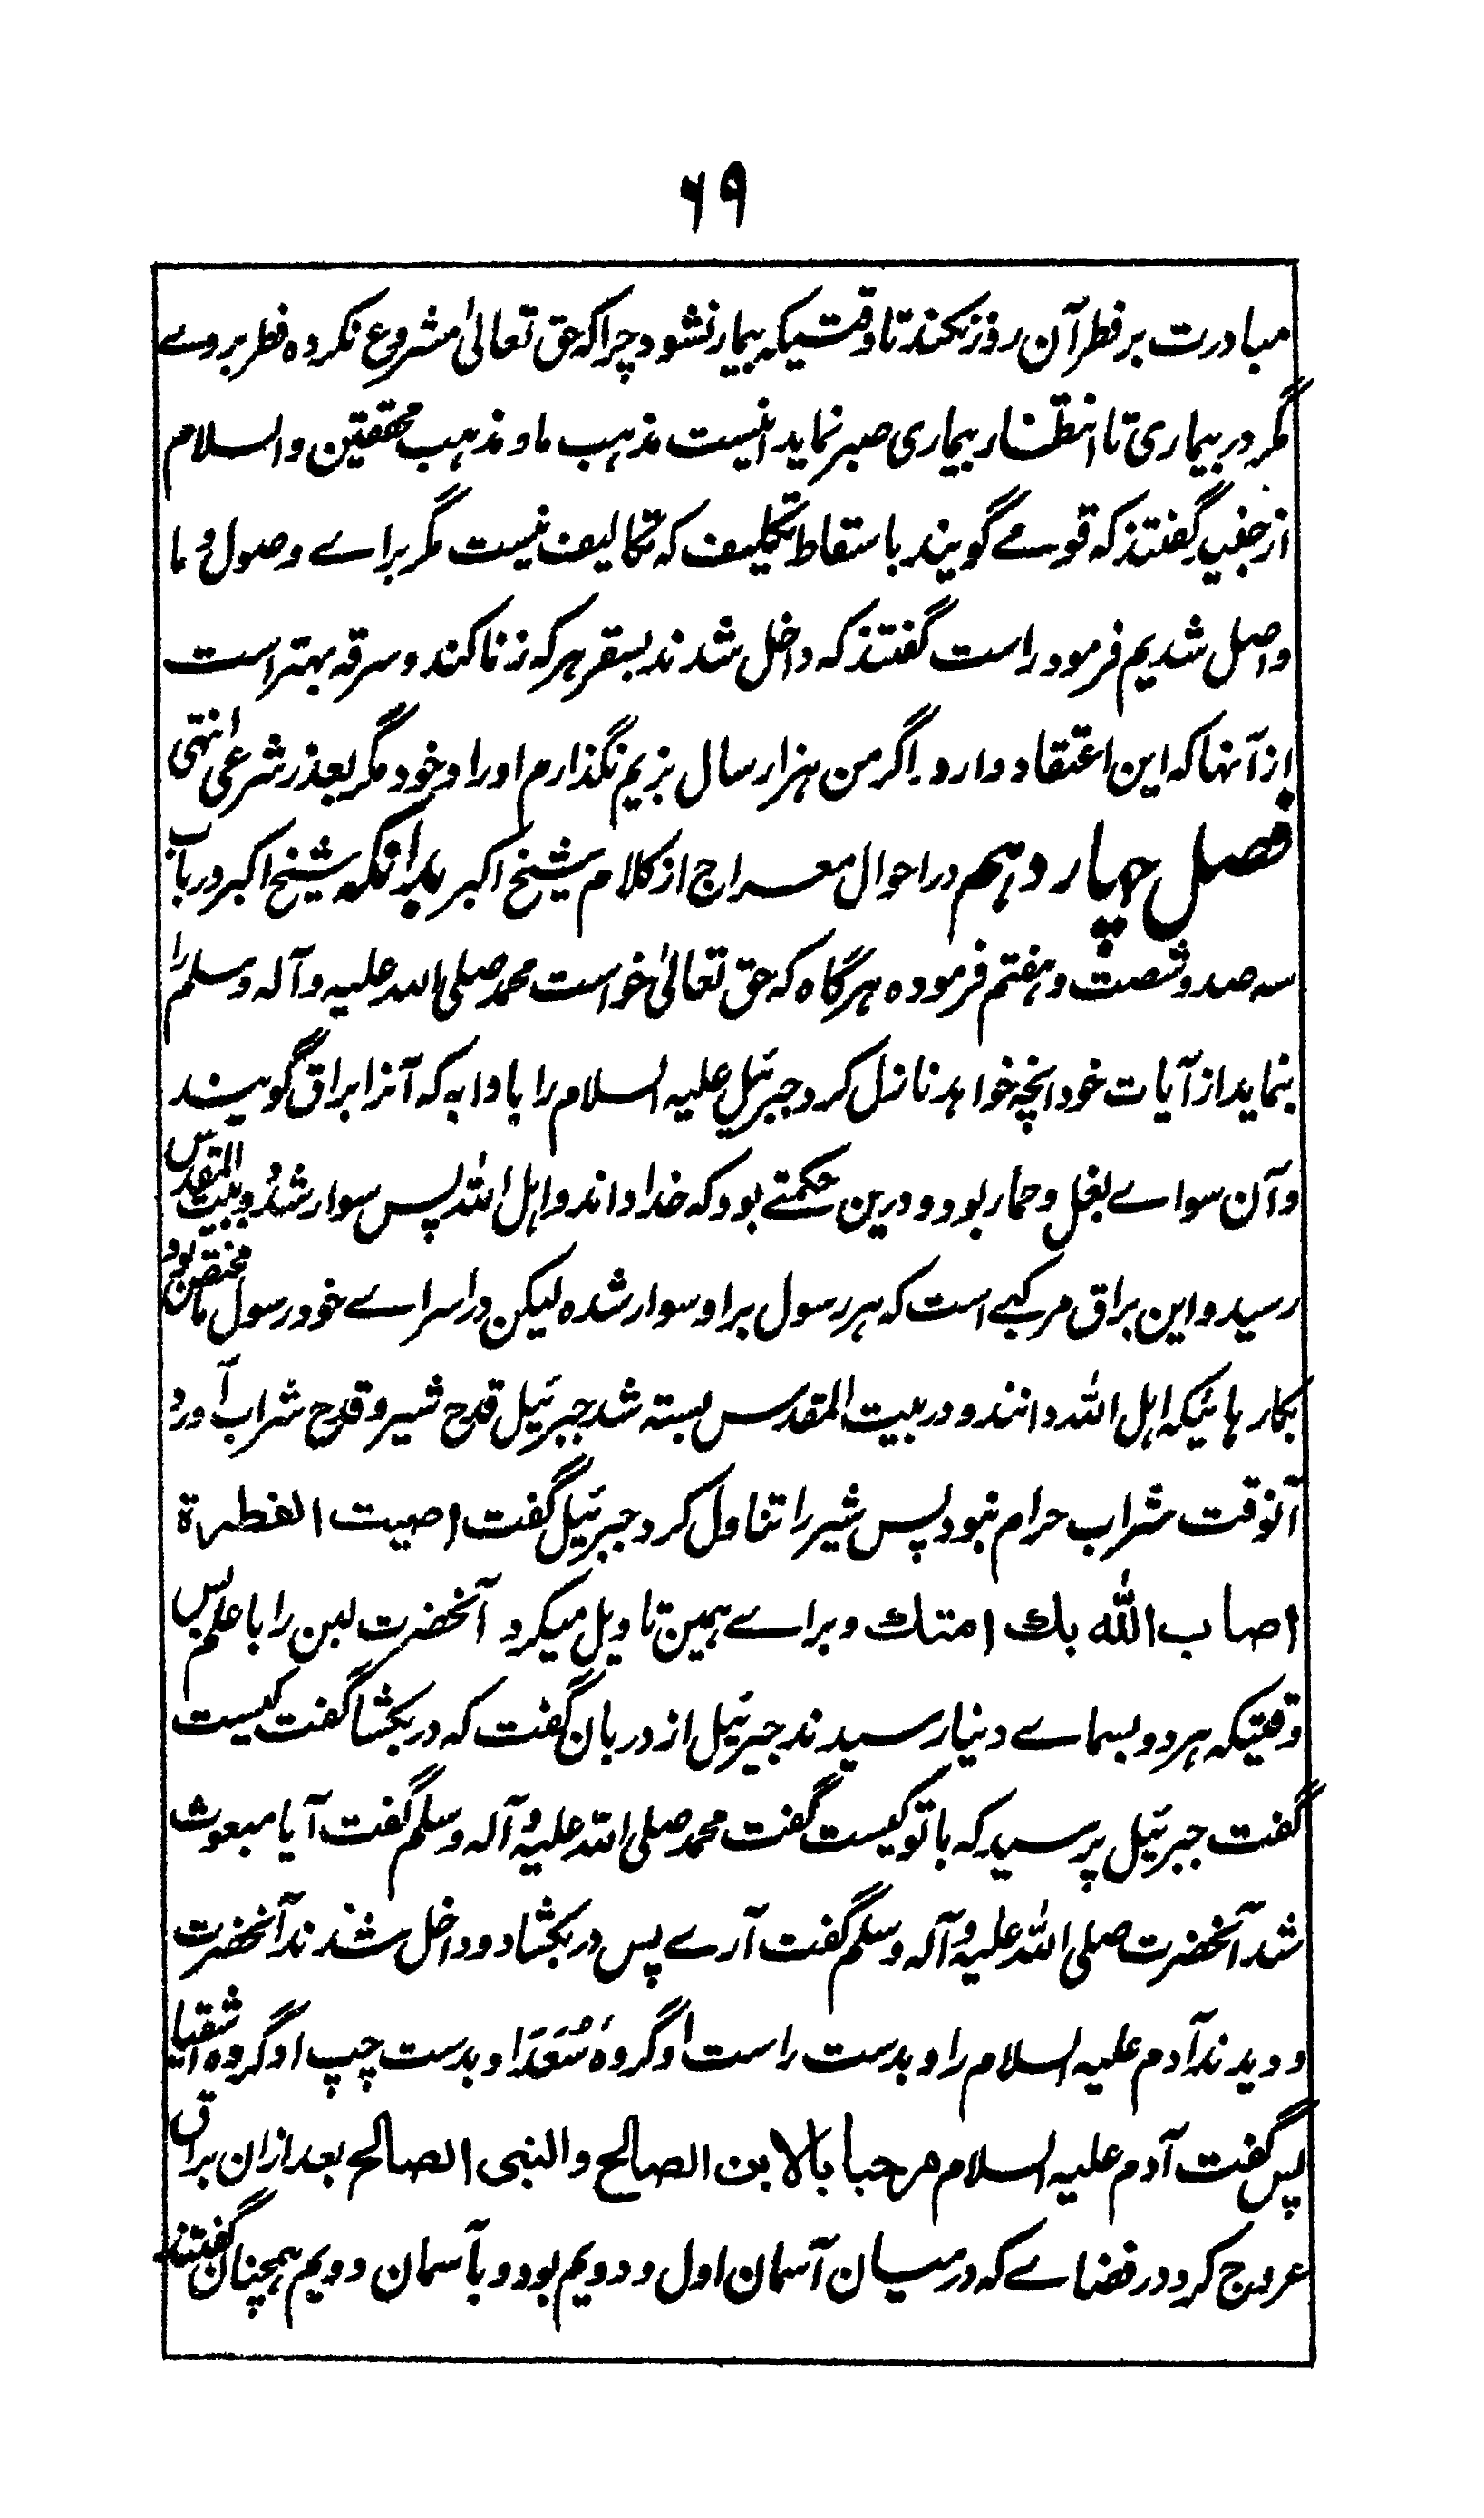 ۶۹
مبادرت بر فطر آن روز نکند تا وقتیکه بیمار نشود چرا که حق تعالیٰ مشروع نکرده فطر بروے
مگر در بیماری تا انتظار بیماری صبر نماید اینست مذہب ما و مذہب محققین والسلام
از جنید گفتند که قومے گویند باسقاط تکلیف که تکالیف نیست مگر براے وصول و ما
واصل شدیم فرمود راست گفتند که داخل شدند بسقر ہر که زنا کند و سرقه بہتر است
از آنہا که این اعتقاد دارد۔ اگر من ہزار سال بزیم نگذارم اوراد خود مگر بعذر شرعی انتہی
فصل چہاردہم در احوال معراج از کلام شیخ اکبر بدانکه شیخ اکبر در باب
سه صد و شصت و ہفتم فرموده ہرگاه که حق تعالیٰ خواست محمد صلی الله علیه وآله وسلم را
بنماید از آیات خود انچه خواہد نازل کرد جبرئیل علیه السلام را با دابه که آنرا براق گویند
و آن سواے بغل و حمار بود و درین حکمتے بود که خدا داند و اہل الله پس سوار شد و ببیت المقدس
رسید و این براق مرکبے است که ہر رسول بر او سوار شده لیکن در اسراے خود رسول ما مختص بود
بکارہائیکه اہل الله دانند و در بیت المقدس بسته شد جبرئیل قدح شیر و قدح شراب آورد
آنوقت شراب حرام نبود پس شیر را تناول کرد جبرئیل گفت اصبت الفطرة
اصاب الله بك امتك و براے ہمین تاویل میکرد آنحضرت لبن را با علم پس
وقتیکه ہر دو بسماے دنیا رسیدند جبرئیل از دربان گفت که در بکشا گفت کیست
گفت جبرئیل پرسید که با تو کیست گفت محمد صلی الله علیه وآله وسلم گفت آیا مبعوث
شد آنحضرت صلی الله علیه وآله وسلم گفت آرے پس در بکشاد و داخل شدند آنحضرت
و دیدند آدم علیه السلام را و بدست راست او گروه سُعَدَا و بدست چپ او گروه اشقیا
پس گفت آدم علیه السلام مرحبا بالابن الصالح والنبی الصالح بعد ازان براق
عروج کرد در فضاے که درمیان آسمان اول و دویم بود و بآسمان دویم ہمچنان گفتند